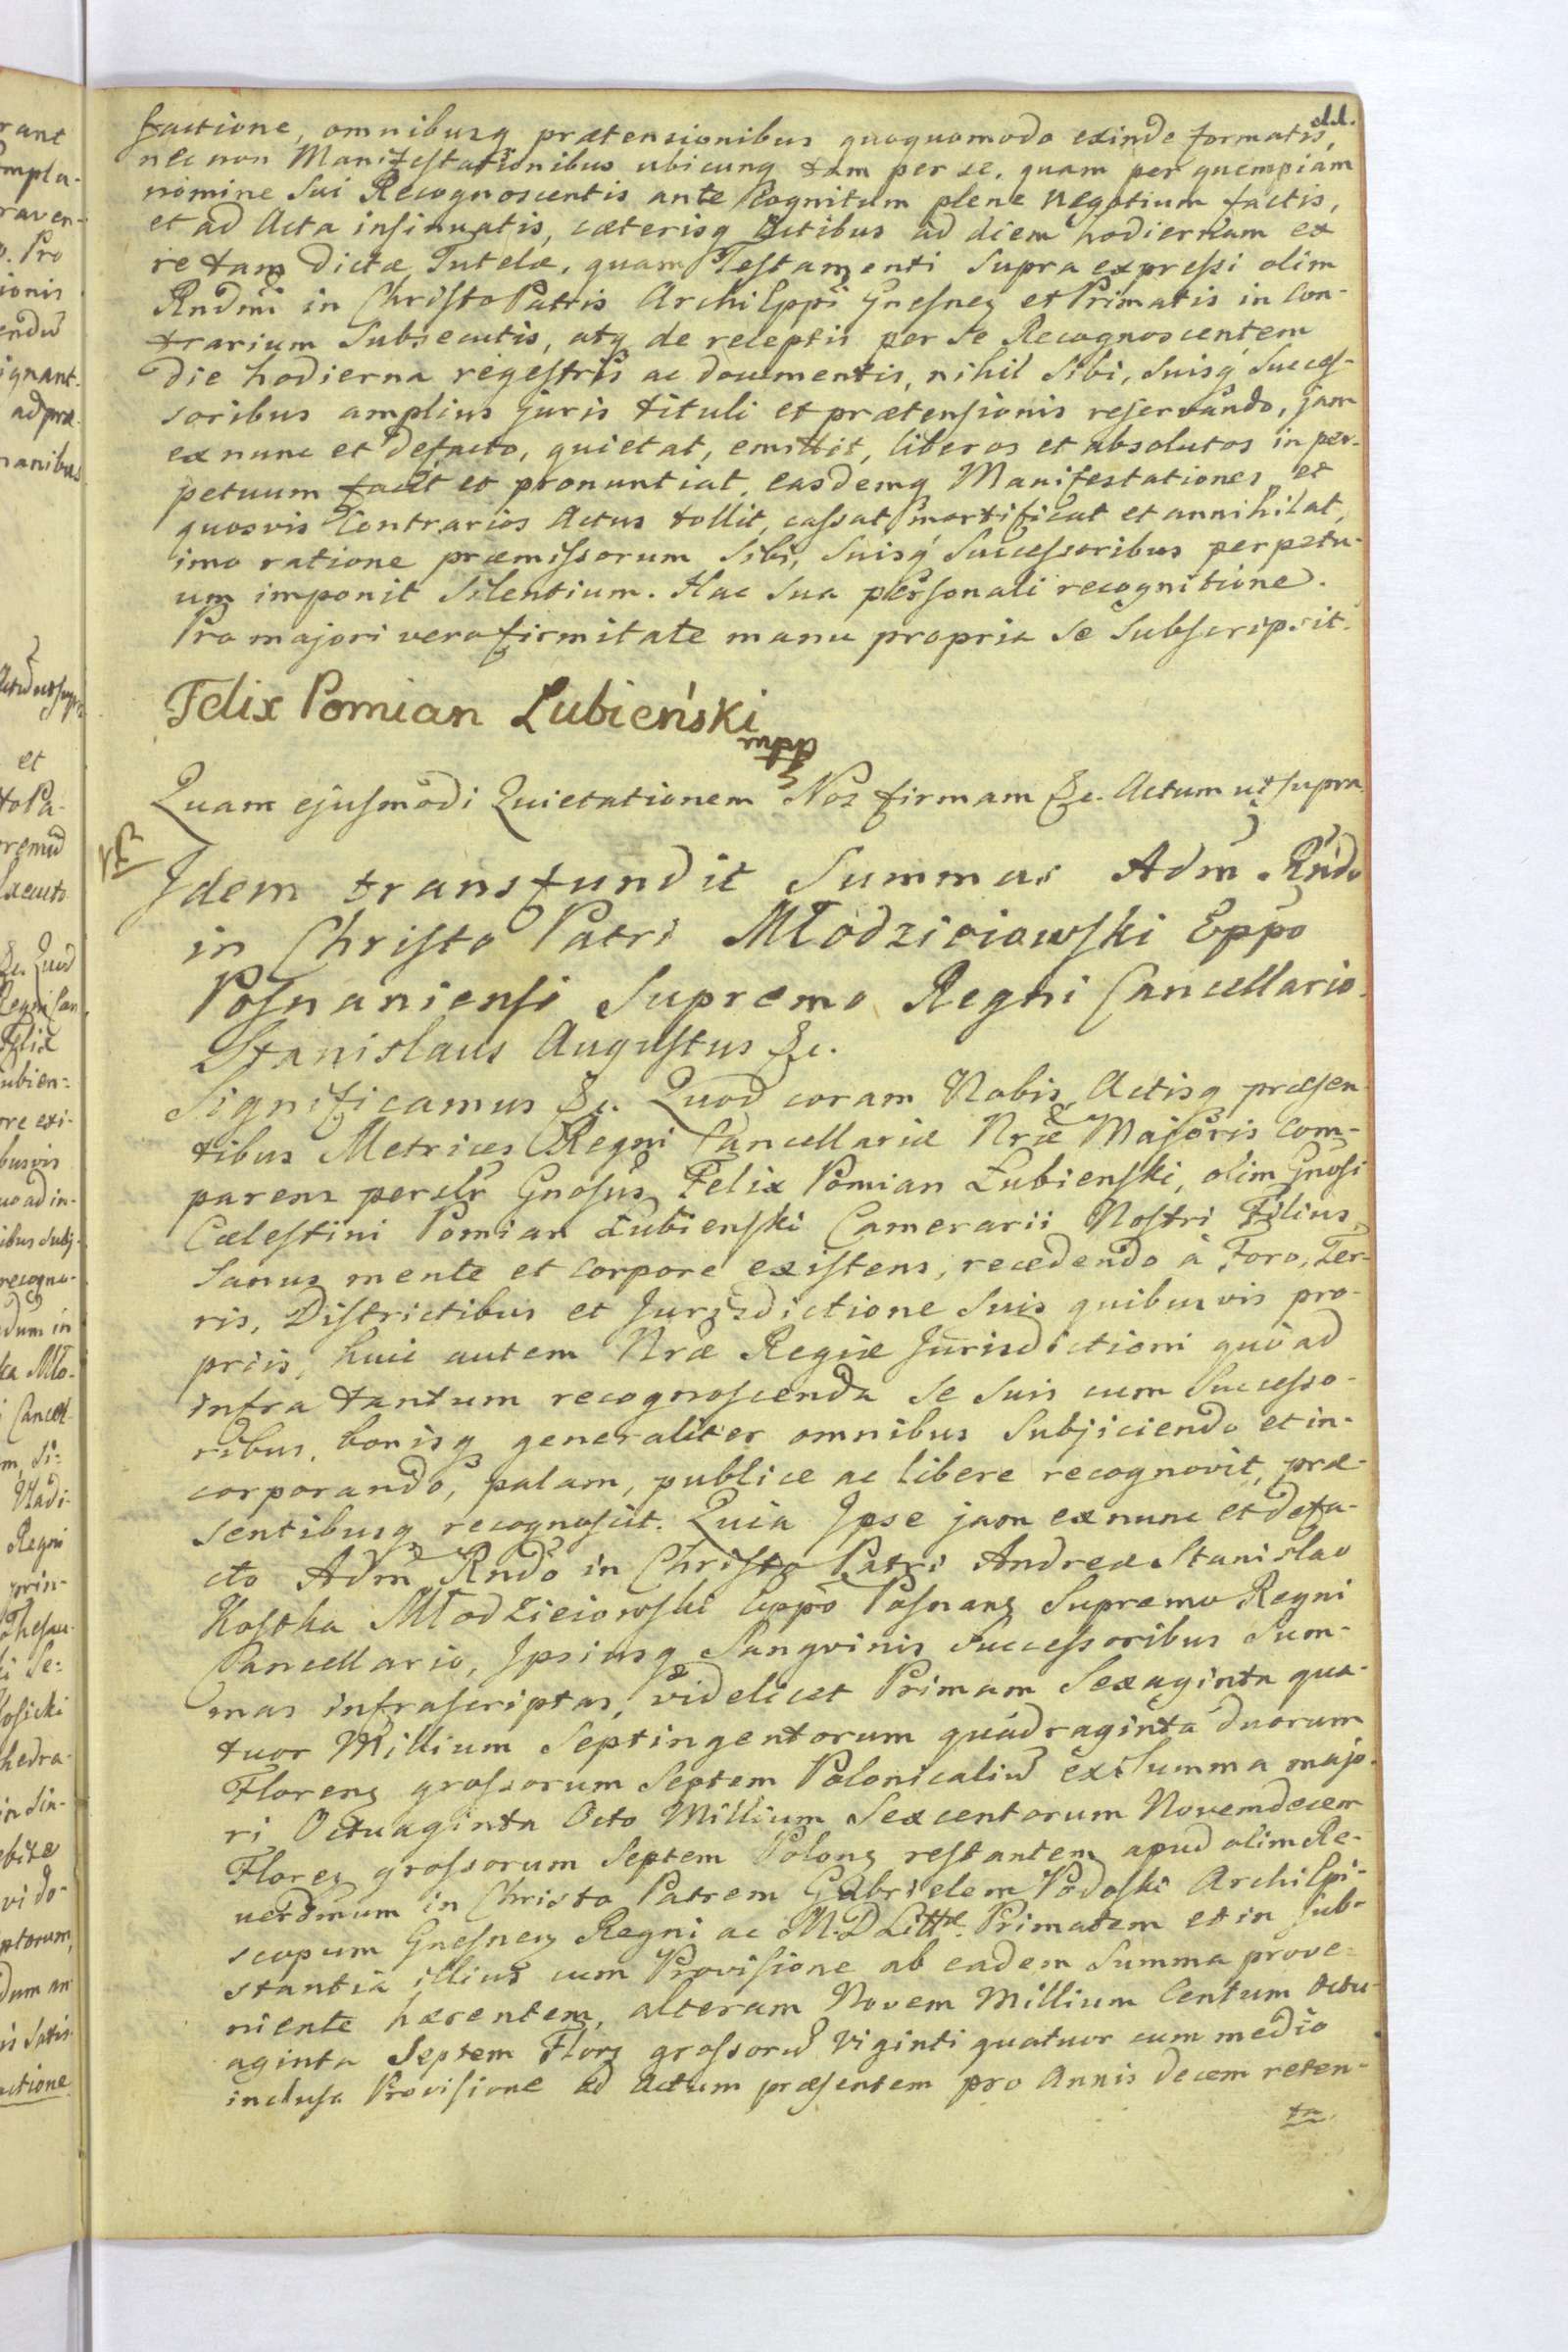 d.d.
factione, omnibusq prætensionibus quoquomodo exinde formatis,
nec non Manifestationibus ubicunq tam per se, quam per quempiam
nomine Sui Recognoscentis ante Cognitum plene Negotium factis,
et ad Acta insinuatis, cæterisq Actibus ad diem hodiernam ex
re tam dictæ Tutelæ, quam Testamenti Supra expressi olim
Rndmi in Christo Patris Archi Eppi Gnesnen et Primatis in Con-
trarium Subsecutis, atq de receptis per Se Recognoscentem
die hodierna regestris ac documentis, nihil Sibi, Suisq Succes-
soribus amplius juris tituli et prætensionis reservando, jam
ex nunc et defacto, quietat, emittit, liberos et absolutos in per-
petuum facit et pronuntiat, easdemq Manifestationes et
quosvis Contrarios Actus tollit, cassat mortificat et annihilat,
imo ratione præmissorum Sibi, Suisq Successoribus perpetu-
um imponit Silentium. Hac Sua personali recognitione.
Pro majori vero firmitate manu propria Se Subscripsit.
Felix Pomian Lubieński
Quam ejusmodi Quietationem Nos firmam &c. Actum ut supra.
Idem transfundit Summas Adm Rndo
in Christo Patri Młodzieiowski Eppo
Posnaniensi Supremo Regni Cancellario.
Stanislaus Augustus &c.
Significamus &c. Quod coram Nobis Actisq præsen
tibus Metrices Regni Cancellariæ Nræ Majoris Com-
parens personlr Gnosus Felix Pomian Łubienski, olim Gnosi
Cælestini Pomian Łubienski Camerarii Nostri Filius
Sanus mente et Corpore existens, recedendo à Foro, Ter-
ris, Districtibus et Jurisdictione Suis quibusvis pro-
priis, huic autem Nræ Regiæ Jurisdictioni quò ad
infra tantum recognoscenda Se Suis cum Successo-
ribus, bonisq generaliter omnibus Subjiciendo et in-
corporando, palam, publice ac libere recognovit, præ-
sentibusq recognoscit. Quia Ipse jam ex nunc et defa-
cto Adm Rndo in Christo Patri Andreæ Stanislao
Kostka Młodzieiowski Eppo Posnan Supremo Regni
Cancellario, Ipsiusq Sangvinis Successoribus Sum-
mas infrascriptas, videlicet Primam Sexaginta qua-
tuor Millium Septingentorum quadraginta duorum
Floren grossorum Septem Polonicaliu ex Summa majo-
ri Octuaginta Octo Millium Sexcentorum Novemdecem
Floren grossorum Septem Polon restantem apud olim Re-
verdmum in Christo Patrem Gabrielem Podoski Archi Epi-
scopum Gnesnen Regni ac M.D Littæ. Primatem et in Sub-
stantia illius cum Provisione ab eadem Summa prove-
niente hærentem, alteram Novem Millium Centum Octu-
aginta Septem Flor grossoru viginti quatuor cum medio
inclusa Provisione ad Actum præsentem pro Annis decem reten-
ta